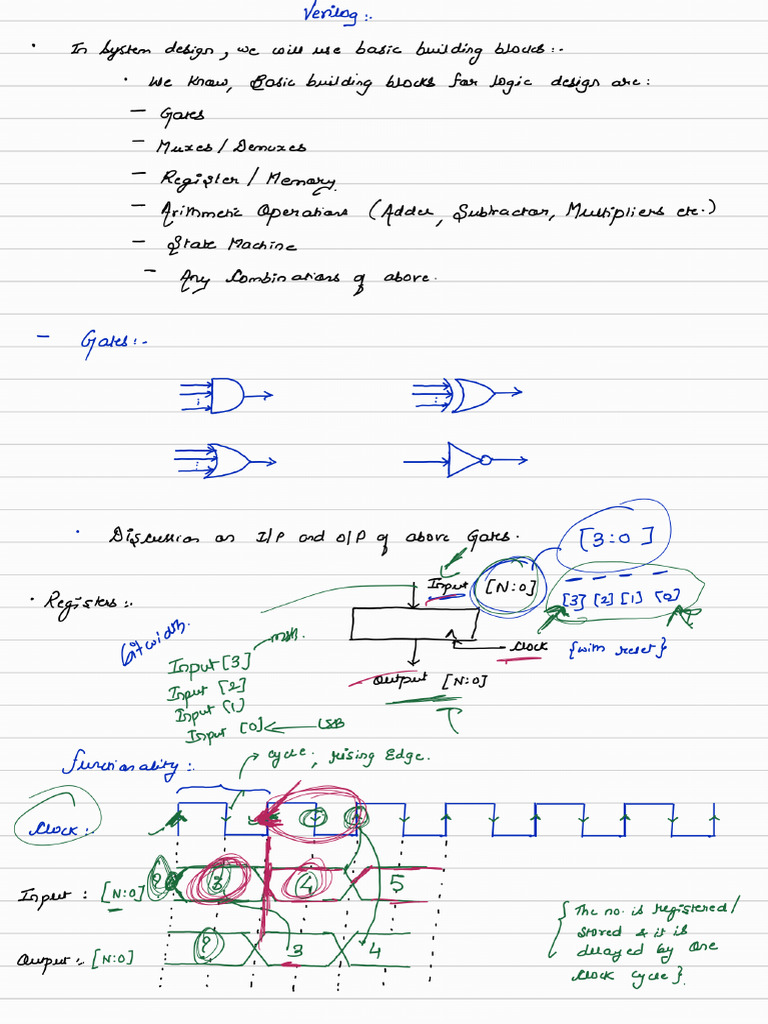 Verilog :.
· In System design, we will use basic building blocks :-
· We know, Basic building blocks for logic design are :
- Gates
- Muxes / Demuxes
- Register / Memory.
- Arithmetic Operations (Adder, Subtractor, Multipliers etc.)
- State Machine
- Any Combinations of above.
- Gates :-
· Discussion on I/P and O/P of above Gates.
[3:0]
· Registers :.
Input [N:0]
[3] [2] [1] [0]
Bitwidth.
msb.
Clock {with reset}
Input [3]
Output [N:0]
Input [2]
Input [1]
Input [0] LSB
functionality :.
cycle, rising Edge.
Clock :.
Input : [N:0] ? 3 4 5
{ The no. is registered /
stored & it is
delayed by one
clock cycle }.
Output :. [N:0] ? 3 4